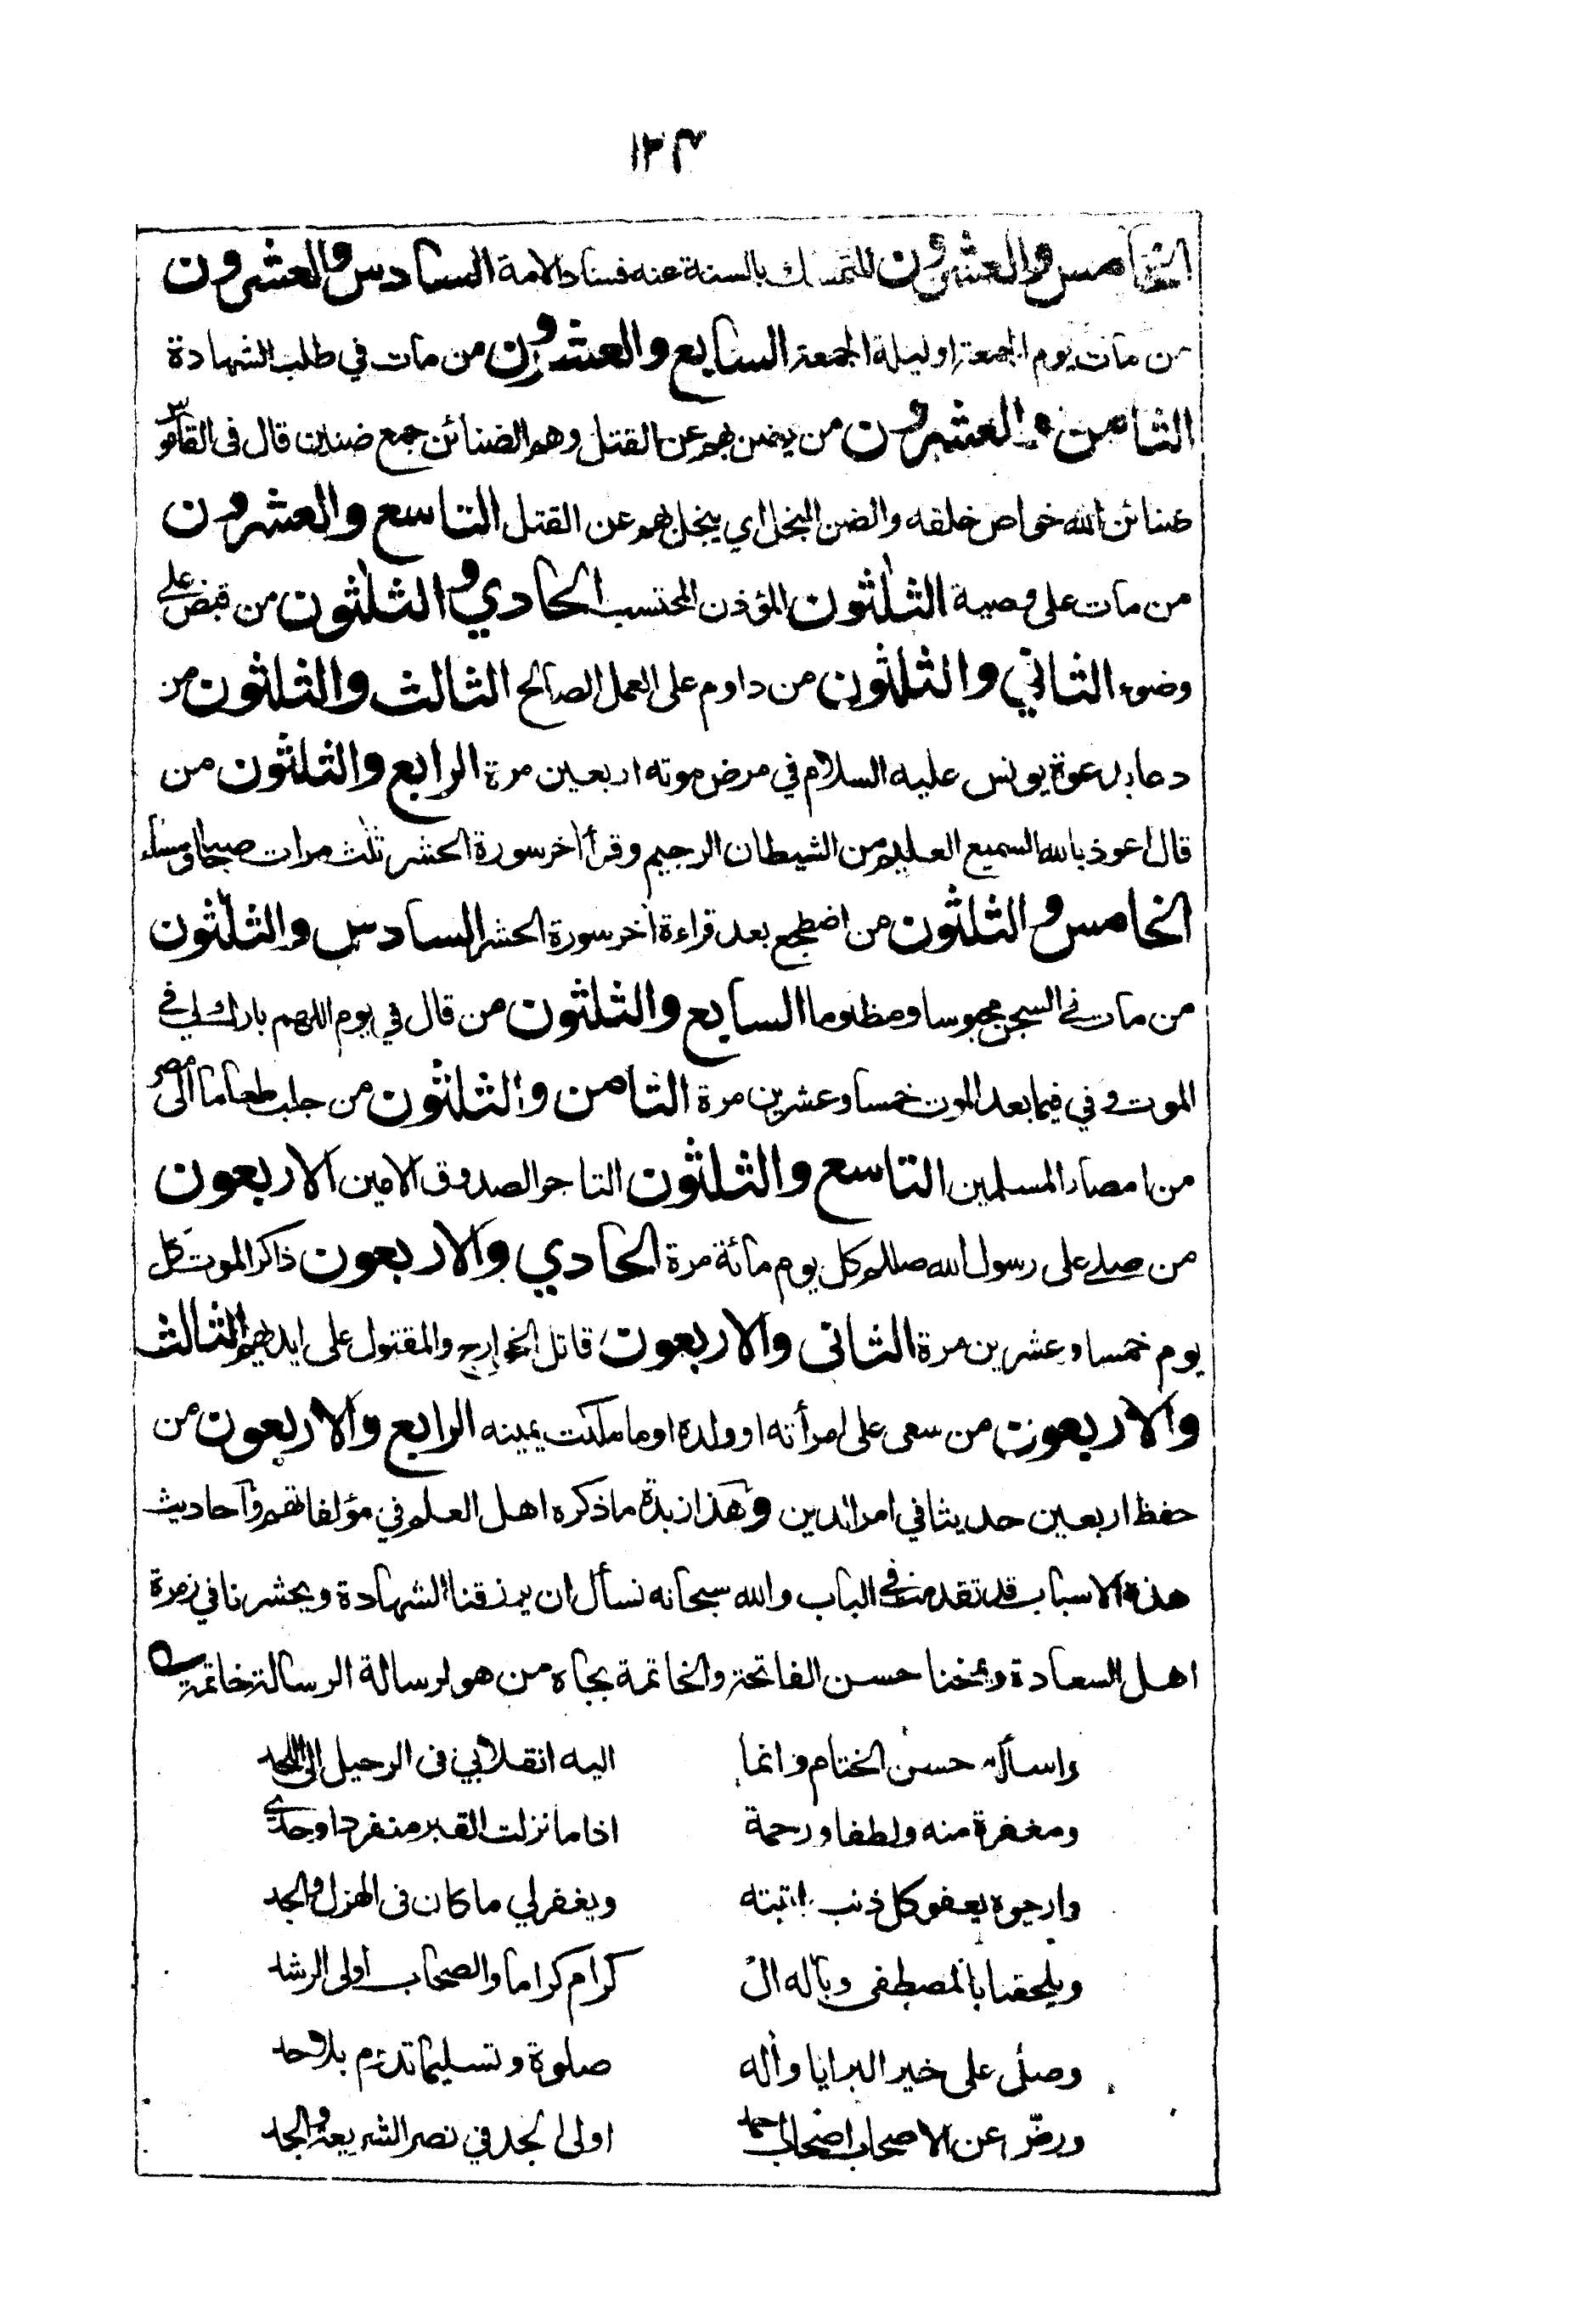 ١٢٣
الخامس والعشرون للتمسك بالسنة عند فساد الامة السادس والعشرون
من مات يوم الجمعة او ليلة الجمعة السابع والعشرون من مات في طلب الشهادة
الثامن والعشرون من يضن بهم عن القتل وهم الضنائن جمع ضنين قال فى القاموس
ضنائن الله خواص خلقه والضن البخل اي يبخل بهم عن القتل التاسع والعشرون
من مات على وصية الثلثون المؤذن المحتسب الحادي والثلثون من قبض على
وضوء الثاني والثلثون من داوم على العمل الصالح الثالث والثلثون من
دعا بدعوة يونس عليه السلام في مرض موته اربعين مرة الرابع والثلثون من
قال اعوذ بالله السميع العليم من الشيطان الرجيم وقرأ اخر سورة الحشر ثلث مرات صباحا ومساء
الخامس والثلثون من اضطجع بعد قراءة اخر سورة الحشر السادس والثلثون
من مات في السجن محبوسا ومظلوما السابع والثلثون من قال في يوم اللهم بارك لي في
الموت وفي فيما بعد الموت خمسا وعشرين مرة الثامن والثلثون من جلب طعاما الى مصر
من امصار المسلمين التاسع والثلثون التاجر الصدوق الامين الاربعون
من صلى على رسول الله صللم كل يوم مائة مرة الحادي والاربعون ذاكر الموت كل
يوم خمسا وعشرين مرة الثانى والاربعون قاتل الخوارج والمقتول على ايديهم الثالث
والاربعون من سعى على امرأته او ولده او ما ملكت يمينه الرابع والاربعون من
حفظ اربعين حديثا في امر الدين وهذا زبدة ما ذكره اهل العلم في مؤلفاتهم واحاديث
هذه الاسباب قد تقدمت في الباب والله سبحانه نسأل ان يرزقنا الشهادة ويحشرنا في زمرة
اهل السعادة ويمنحنا حسن الفاتحة والخاتمة بجاه من هو لرسالة الرسالة خاتمة
واسأله حسن الختام وانما اليه انقلابي فى الرحيل الى اللحد
ومغفرة منه ولطفا ورحمة اذا ما نزلت القبر منفردا وحدي
وارجوه يعفو كل ذنب اتيته ويغفر لي ما كان فى الهزل والجد
ويلحقنا بالمصطفى وبآله ال كرام كراما والصحاب اولى الرشد
وصلى على خير البرايا وآله صلوة وتسليما تدوم بلا حد
ورض عن الاصحاب اصحاب احمد اولى الجد في نصر الشريعة والجد